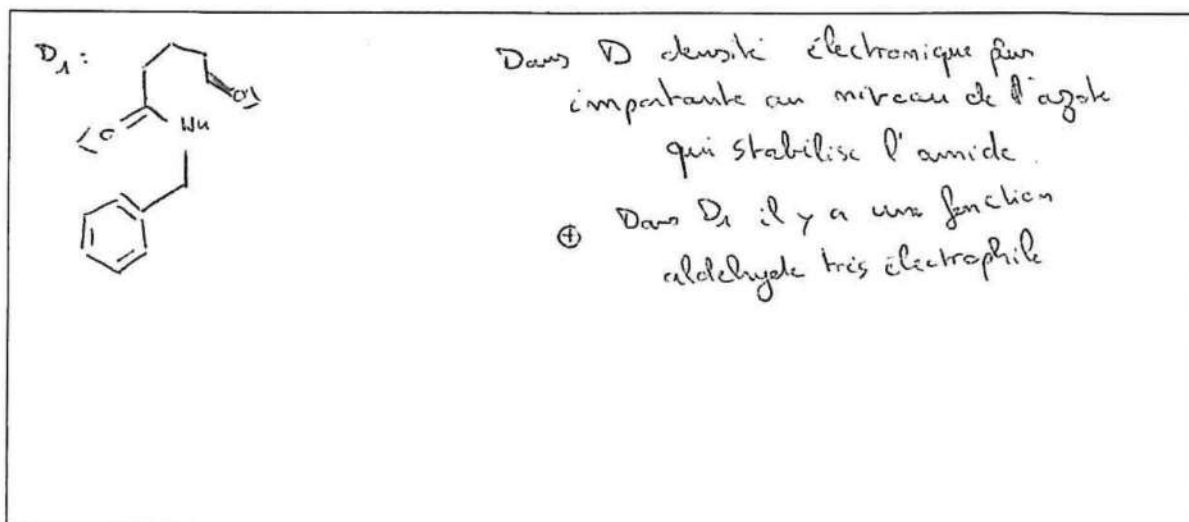 D₁ :
O
NH
O
Dans D densité électronique plus
importante au niveau de l'azote
qui stabilise l'amide.
⊕ Dans D₁ il y a une fonction
aldehyde très électrophile